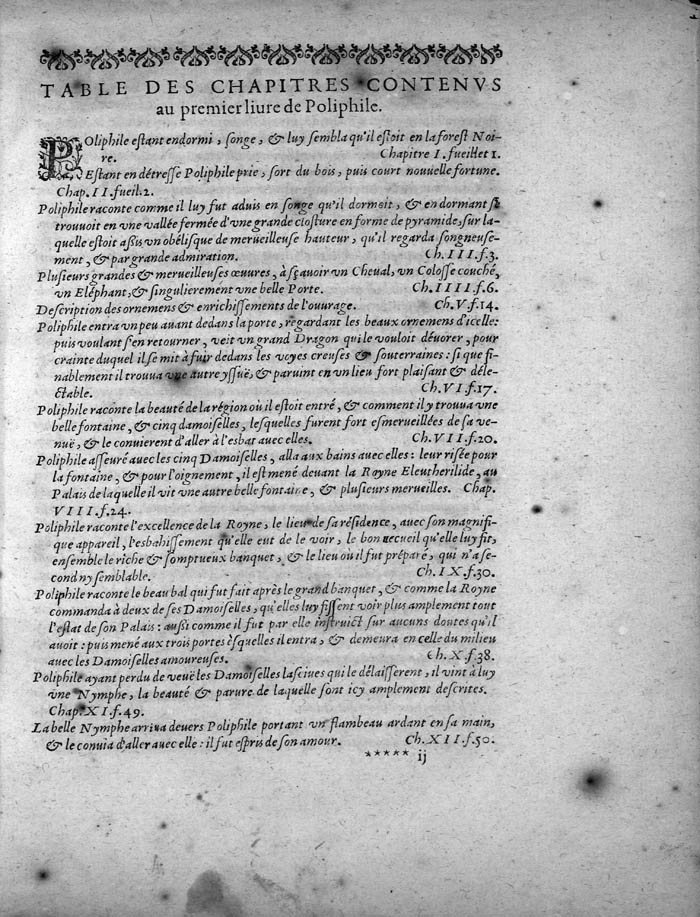 TABLE DES CHAPITRES CONTENVS
au premier liure de Poliphile.
POliphile eſtant endormi, ſonge, & luy ſembla qu'il eſtoit en la foreſt Noi-
re. Chapitre I. fueillet 1.
Eſtant en détreſſe Poliphile prie, ſort du bois, puis court nouuelle fortune.
Chap. II. fueil. 2.
Poliphile raconte comme il luy fut aduis en ſonge qu'il dormoit, & en dormant ſe
trouuoit en vne vallée fermée d'vne grande cloſture en forme de pyramide, ſur la-
quelle eſtoit aſsis vn obéliſque de merueilleuſe hauteur, qu'il regarda ſongneuſe-
ment, & par grande admiration. Ch. III. f. 3.
Pluſieurs grandes & merueilleuſes œuures, à ſçauoir vn Cheual, vn Coloſſe couché,
vn Eléphant, & ſingulierement vne belle Porte. Ch. IIII. f. 6.
Deſcription des ornemens & enrichiſſements de l'ouurage. Ch. V. f. 14.
Poliphile entra vn peu auant dedans la porte, regardant les beaux ornemens d'icelle:
puis voulant ſ'en retourner, veit vn grand Dragon qui le vouloit déuorer, pour
crainte duquel il ſe mit à fuir dedans les voyes creuſes & ſouterraines: ſi que fi-
nablement il trouua vne autre yſſuë, & paruint en vn lieu fort plaiſant & déle-
ctable. Ch. VI. f. 17.
Poliphile raconte la beauté de la région où il eſtoit entré, & comment il y trouua vne
belle fontaine, & cinq damoiſelles, leſquelles furent fort eſmerueillées de ſa ve-
nuë, & le conuierent d'aller à l'eſbat auec elles. Ch. VII. f. 20.
Poliphile aſſeuré auec les cinq Damoiſelles, alla aux bains auec elles: leur riſée pour
la fontaine, & pour l'oignement, il eſt mené deuant la Royne Eleutherilide, au
Palais de laquelle il vit vne autre belle fontaine, & pluſieurs merueilles. Chap.
VIII. f. 24.
Poliphile raconte l'excellence de la Royne, le lieu de ſa réſidence, auec ſon magnifi-
que appareil, l'eſbahiſſement qu'elle eut de le voir, le bon recueil qu'elle luy fit,
enſemble le riche & ſomptueux banquet, & le lieu où il fut préparé, qui n'a ſe-
cond ny ſemblable. Ch. IX. f. 30.
Poliphile raconte le beau bal qui fut fait après le grand banquet, & comme la Royne
commanda à deux de ſes Damoiſelles, qu'elles luy fiſſent voir plus amplement tout
l'eſtat de ſon Palais: auſsi comme il fut par elle inſtruict ſur aucuns doutes qu'il
auoit: puis mené aux trois portes éſquelles il entra, & demeura en celle du milieu
auec les Damoiſelles amoureuſes. Ch. X. f. 38.
Poliphile ayant perdu de veuë les Damoiſelles laſciues qui le délaiſſerent, il vint à luy
vne Nymphe, la beauté & parure de laquelle ſont icy amplement deſcrites.
Chap. XI. f. 49.
La belle Nymphe arriua deuers Poliphile portant vn flambeau ardant en ſa main,
& le conuia d'aller auec elle: il fut eſpris de ſon amour. Ch. XII. f. 50.
***** ij